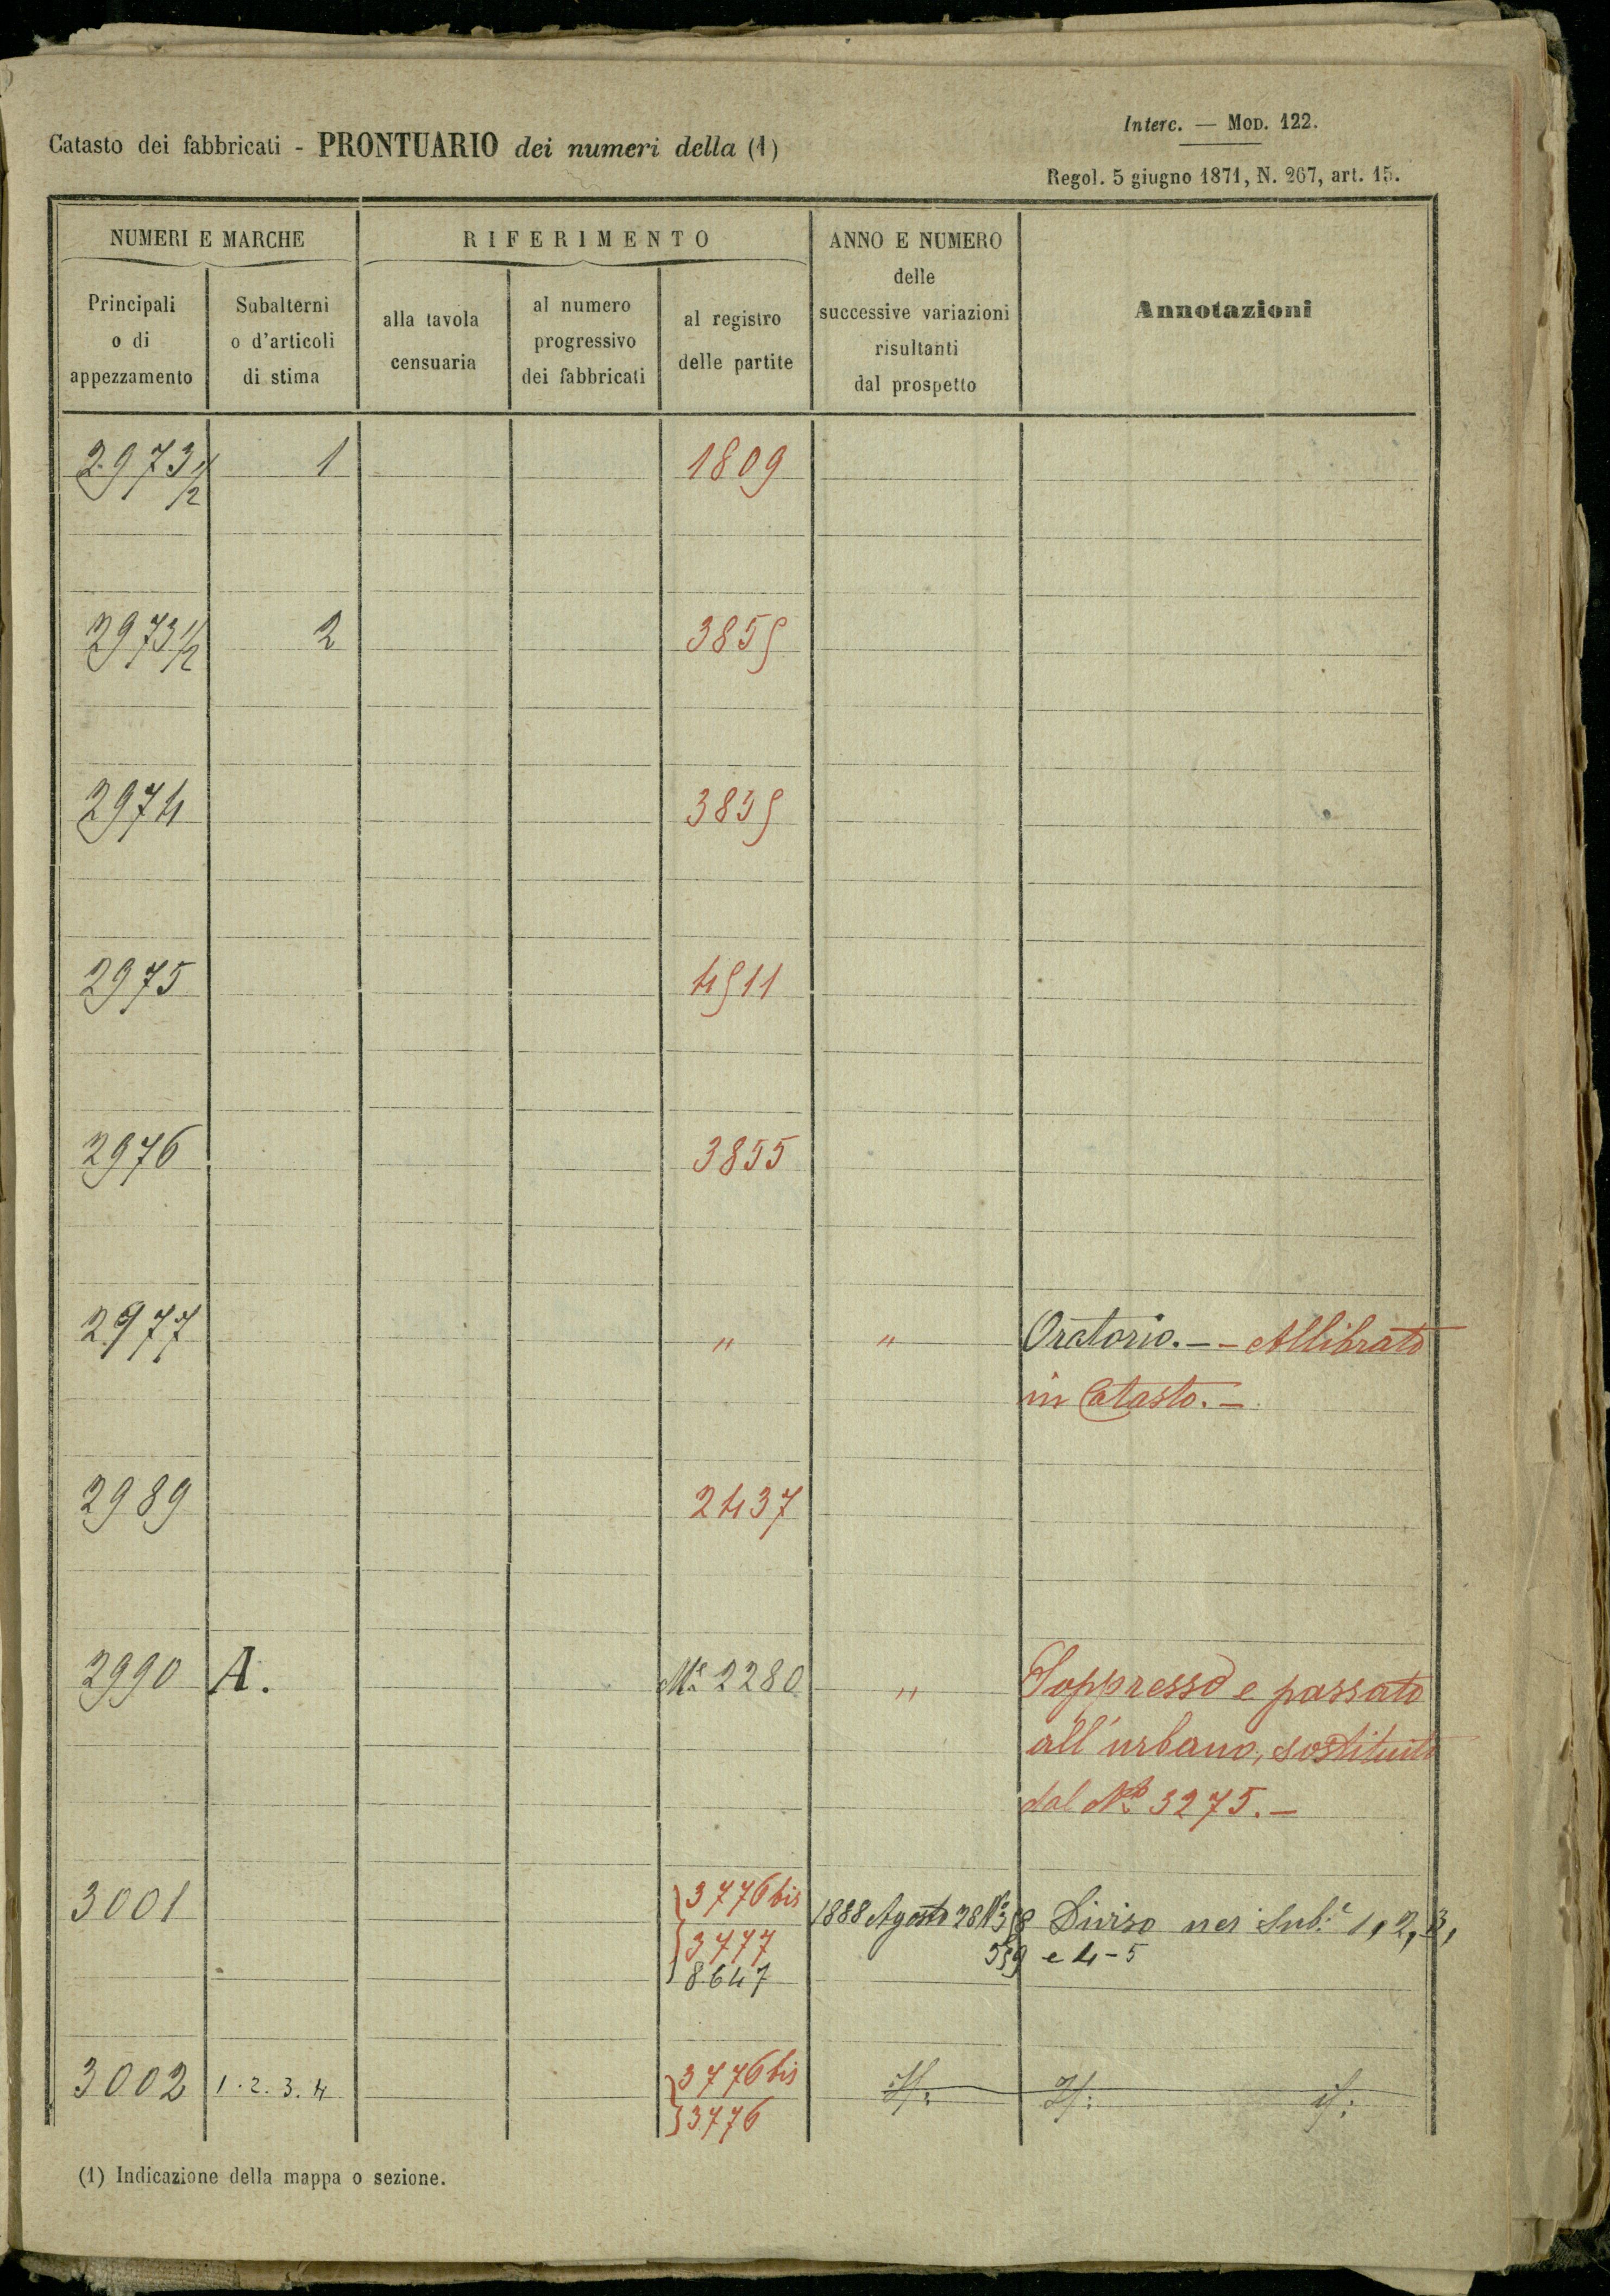 Interc. — Mod. 122.
Catasto dei fabbricati - PRONTUARIO dei numeri della (1)
Regol. 5 giugno 1871, N. 267, art. 15.
NUMERI E MARCHE
Principali
o di
appezzamento
Subalterni
o d'articoli
di stima
RIFERIMENTO
alla tavola
censuaria
al numero
progressivo
dei fabbricati
al registro
delle partite
ANNO E NUMERO
delle
successive variazioni
risultanti
dal prospetto
Annotazioni
2973 1/2 1 1809
2973 1/2 2 3859
2974 3839
2975 4911
2976 3855
2977 " " Oratorio. - - Allibrato
in Catasto. -
2989 2437
2990 A. Me 2280 " Soppresso e passato
all'urbano, sostituito
dal No 3275. -
3001 3776 bis 1888 Agosto 28 No Diviso nei Sub.i 1, 2, 3,
3777 e 4 - 5
8647
3002 1. 2. 3. 4 3776 bis
3776
(1) Indicazione della mappa o sezione.